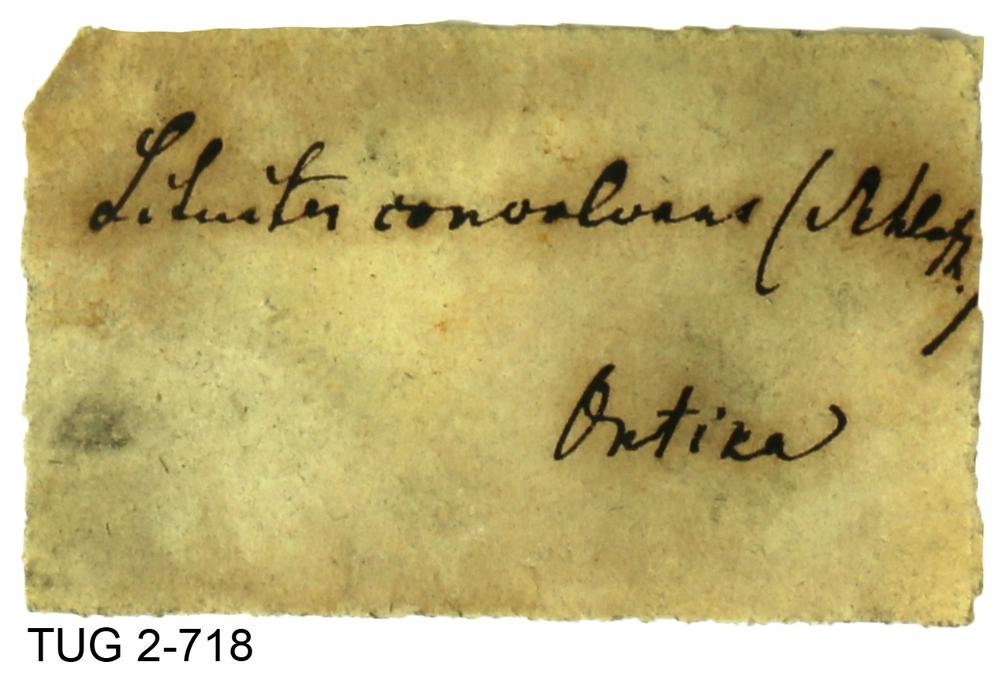 Lituites convolvans (Schloth.)
Ontika
TUG 2-718